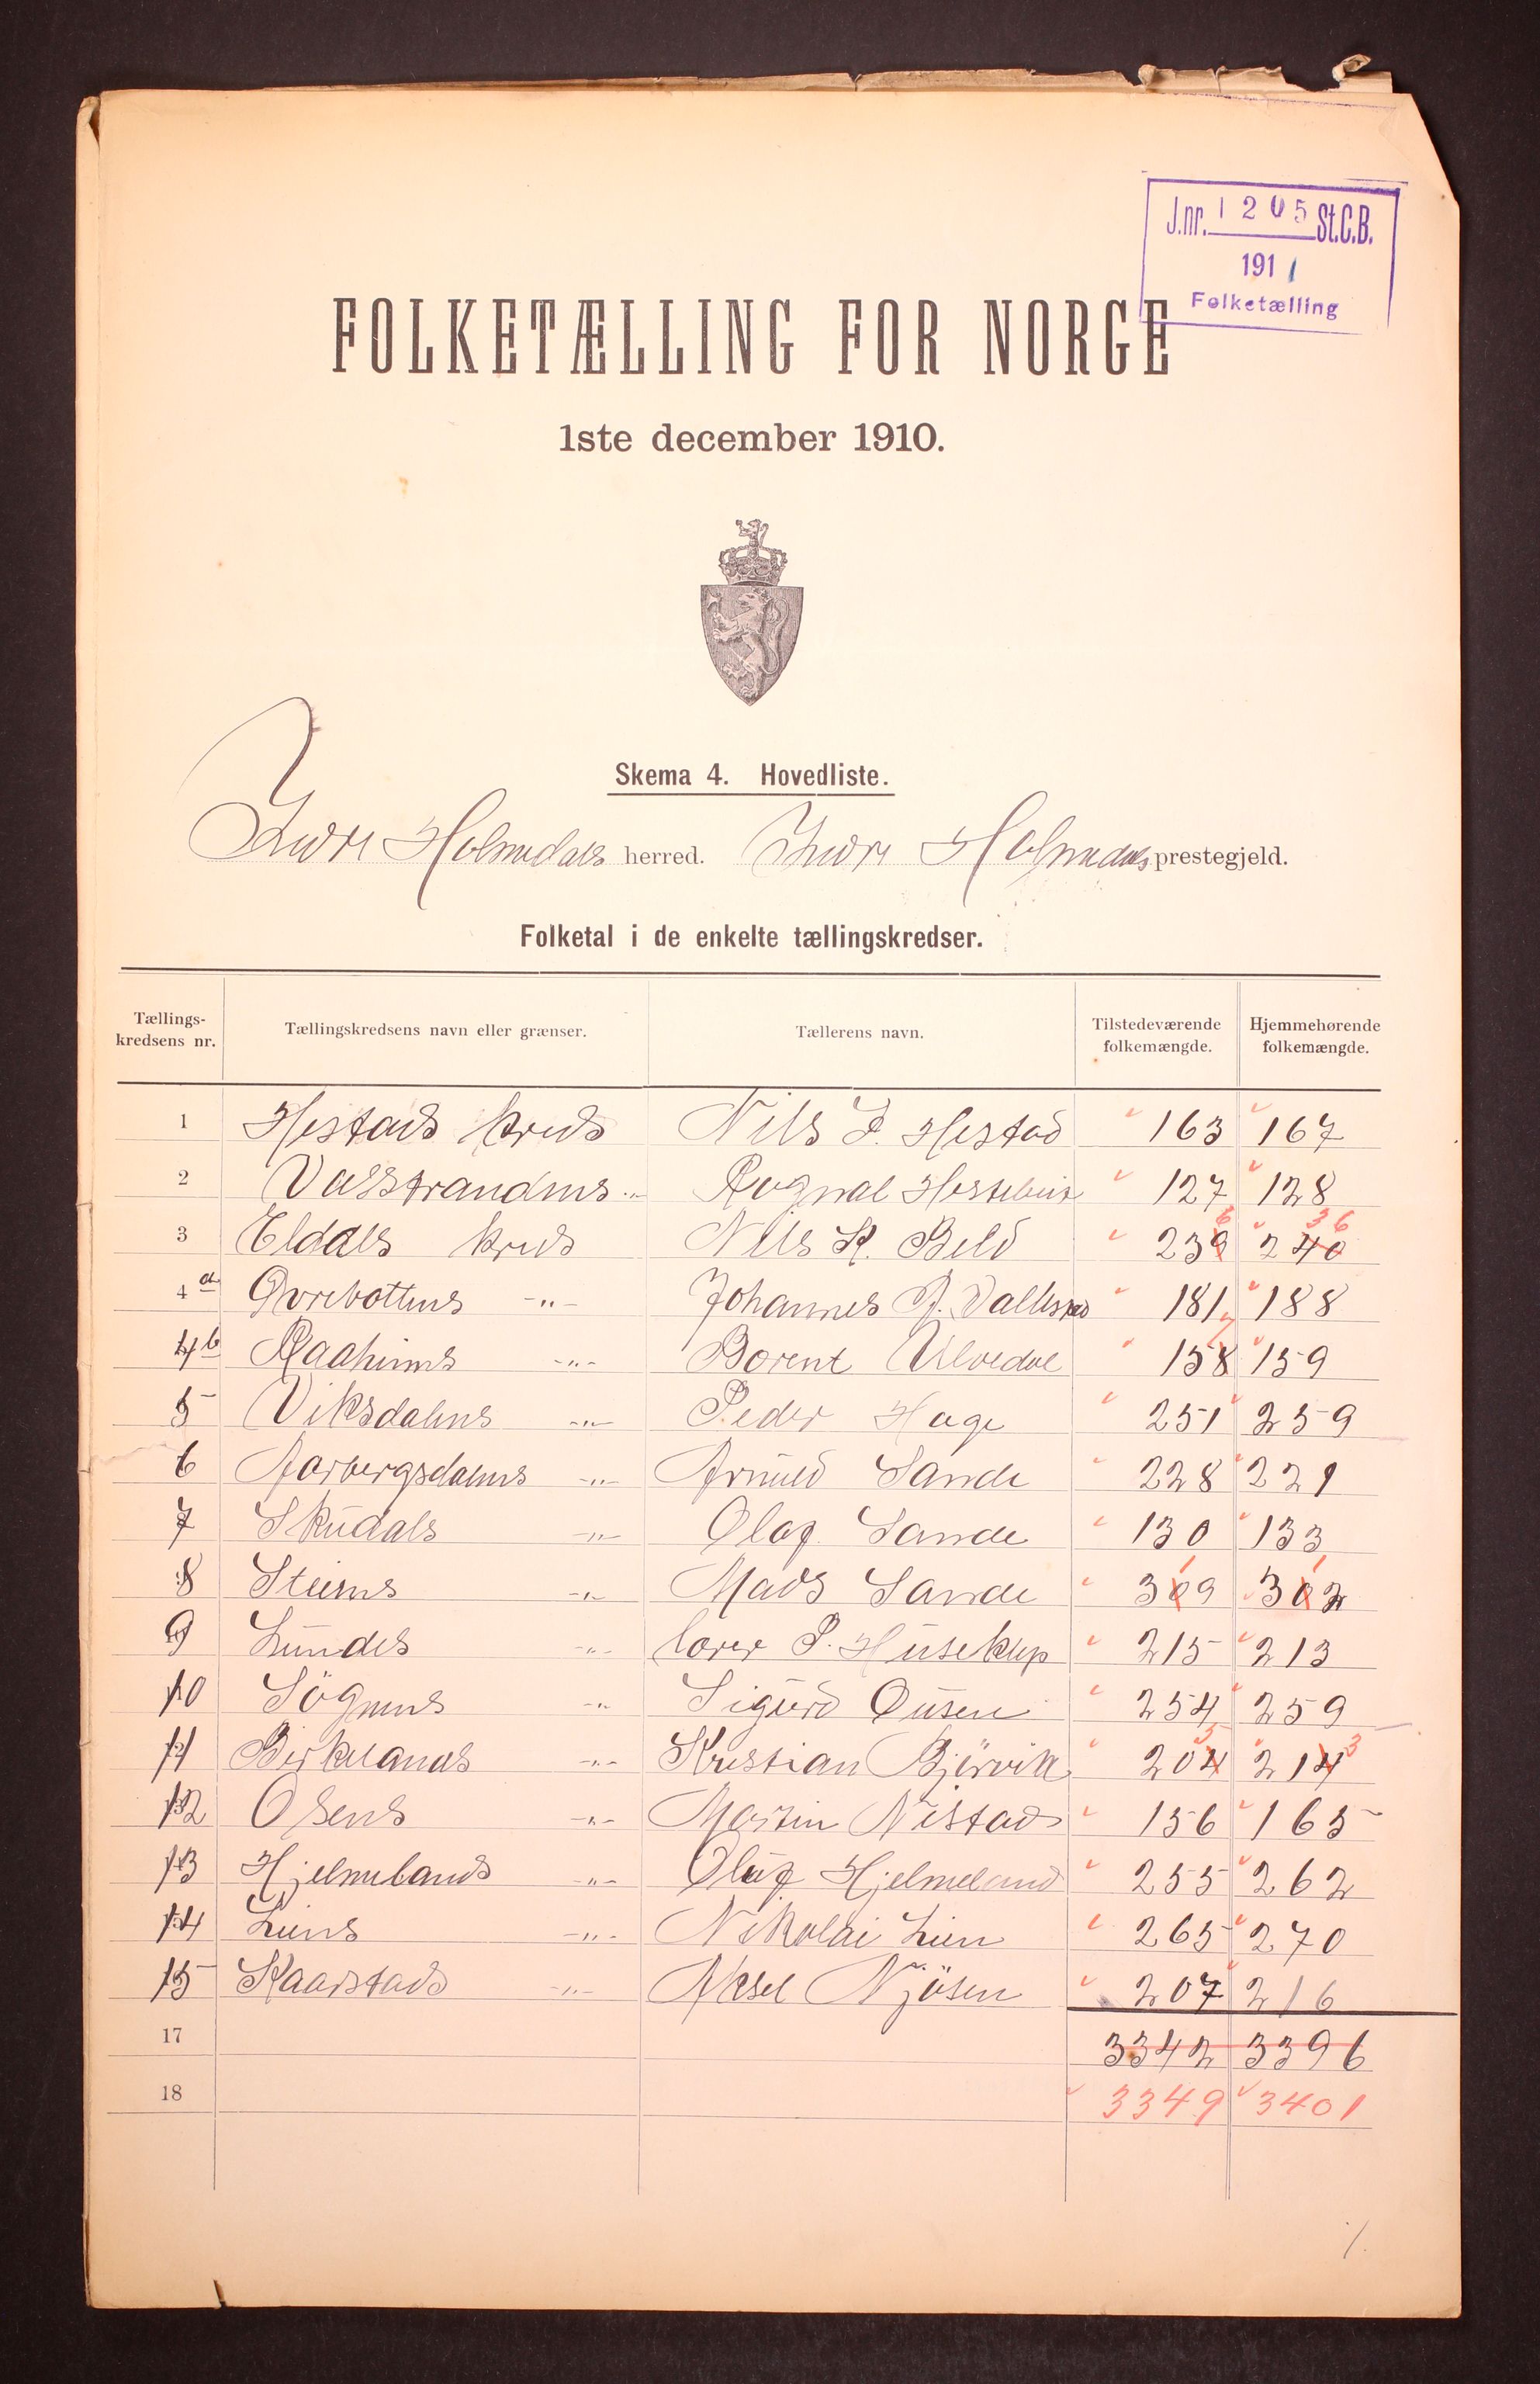 J.nr. 1205 St.C.B.
1911
Folketælling
FOLKETÆLLING FOR NORGE
1ste december 1910.
Skema 4. Hovedliste.
Indre Holmedals herred. Indre Holmedals prestegjeld.
Folketal i de enkelte tællingskredser.
Tællings-kredsens nr. Tællingskredsens navn eller grænser. Tællerens navn. Tilstedeværende folkemængde. Hjemmehørende folkemængde.
1 Hestads kreds Nils J. Hestad 163 167
2 Valstrandens -"- Rognal 127 128
3 Eldals kreds Nils K. Beld 239 6 240 36
4a Övrebottens -"- Johannes 181 188
4b Raaheims -"- Borent Ulvedal 158 7 159
5 Viksdalens -"- Peder Hage 251 259
6 Aarbergsdalens -"- Arnuld Sande 228 221
7 Skudals -"- Olaf Sande 130 133
8 Steiens -"- Mads Sande 309 1 302 1
9 Lundes -"- P. Huseklep 215 213
10 Sögnens -"- Sigurd 254 259
11 Birkelands -"- Kristian Bjørvik 204 5 214 3
12 Osens -"- Martin Nistad 156 165
13 Hjelmelands -"- Oluf Hjelmeland 255 262
14 Liens -"- Nikolai Lien 265 270
15 Kaarstads -"- Aksel Njösen 207 216
17 3342 3396
18 3349 3401
1.